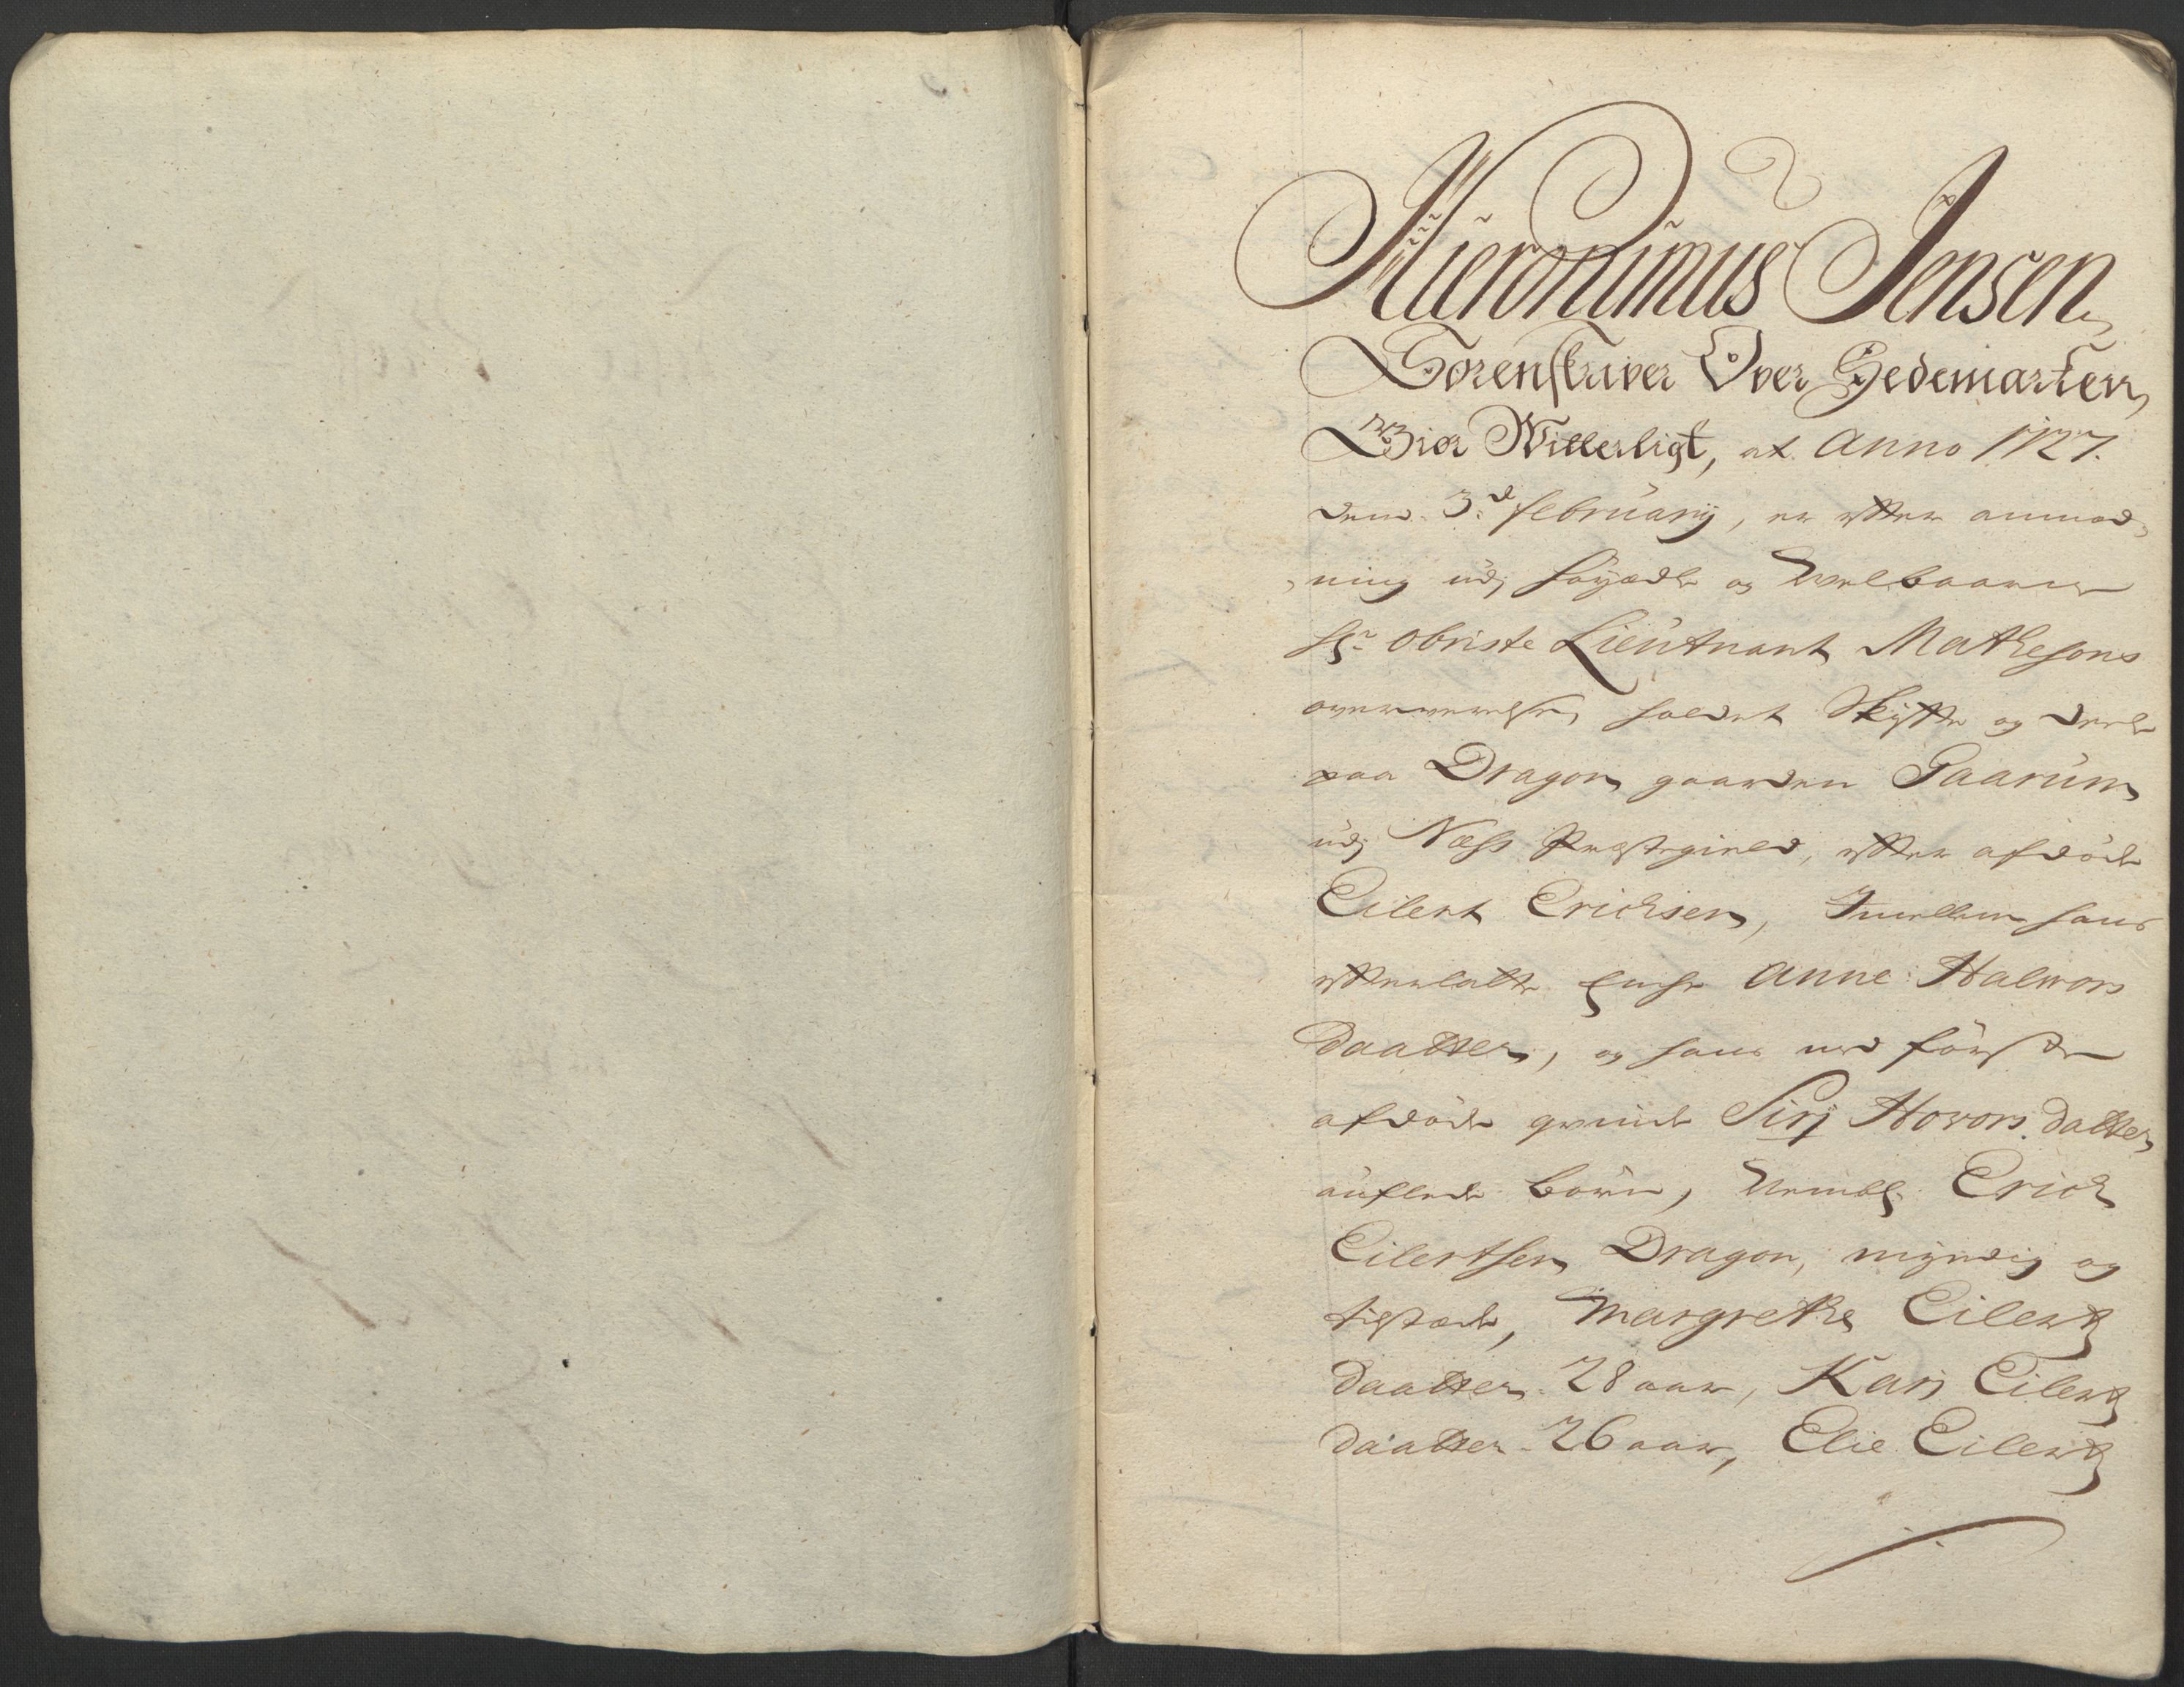 Hieronimus Jensen
Sorenskriver Over Hedemarken,
Giør Witterligt, at Anno 1727.
dend 3.d februarij, er effter anmod,
,ning udj höyædle og Welbaarne
Hr. Obriste Lieutnant Mathesons
overwerelse, holdet Skiffte og deele
paa Dragon gaarden Gaarum
udj Næss Præstegield, effter afdöde
Eilert Erichsen, Imellem hans
effterlatte Encke Anne Halvors
daatter, og hans med förste
afdöde qvinde Sirj Hovors datter
auflede börn, Nembl. Erich
Eilertsen Dragon, myndig og
tilstæde, Margrethe Eilertz
daatter 28 aar, Karj Eilertz
daatter 26 aar, Elie Eilertz